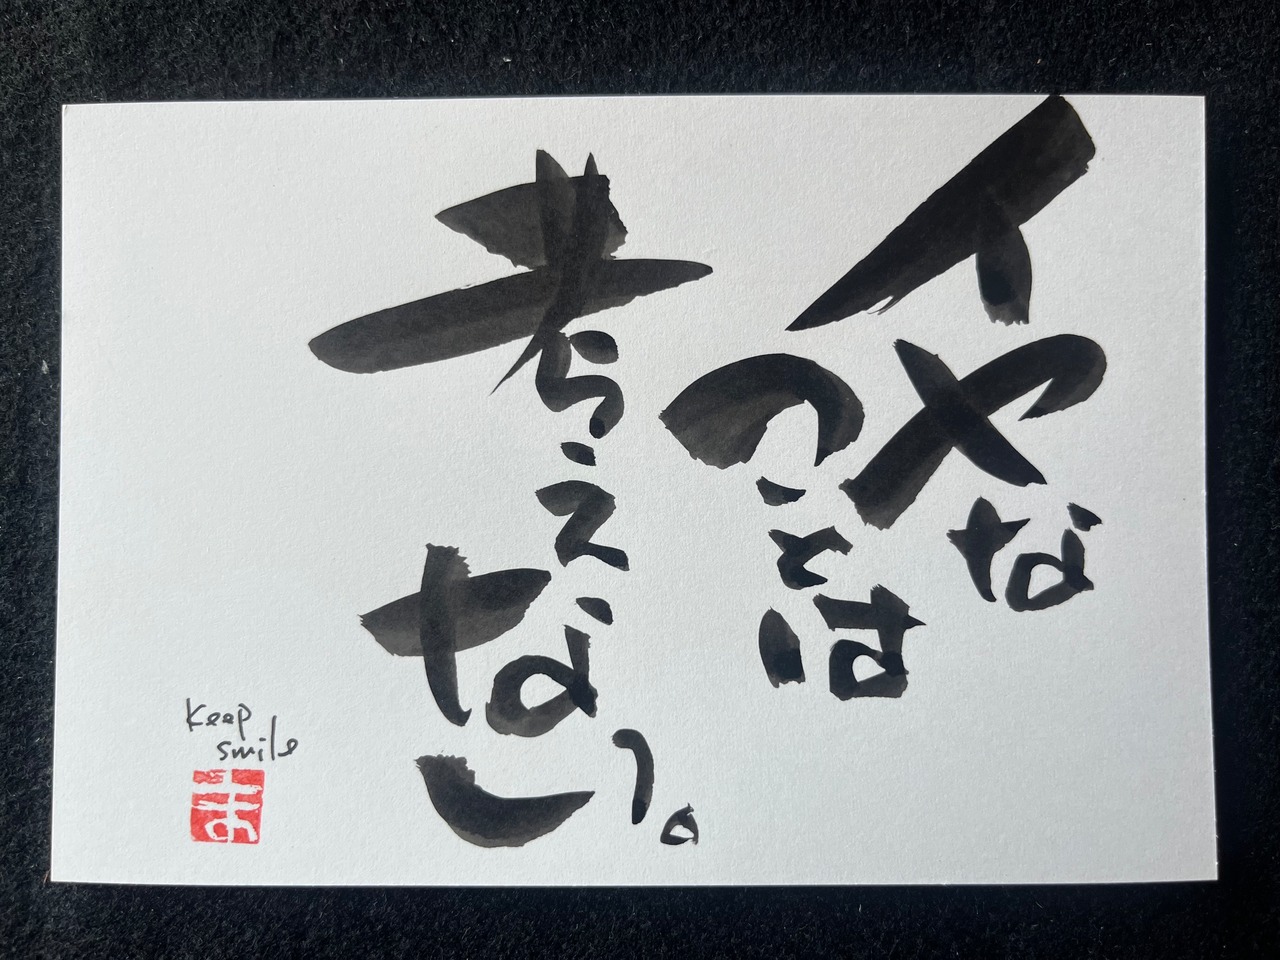 イヤな
ことは
考えない。
keep
smile